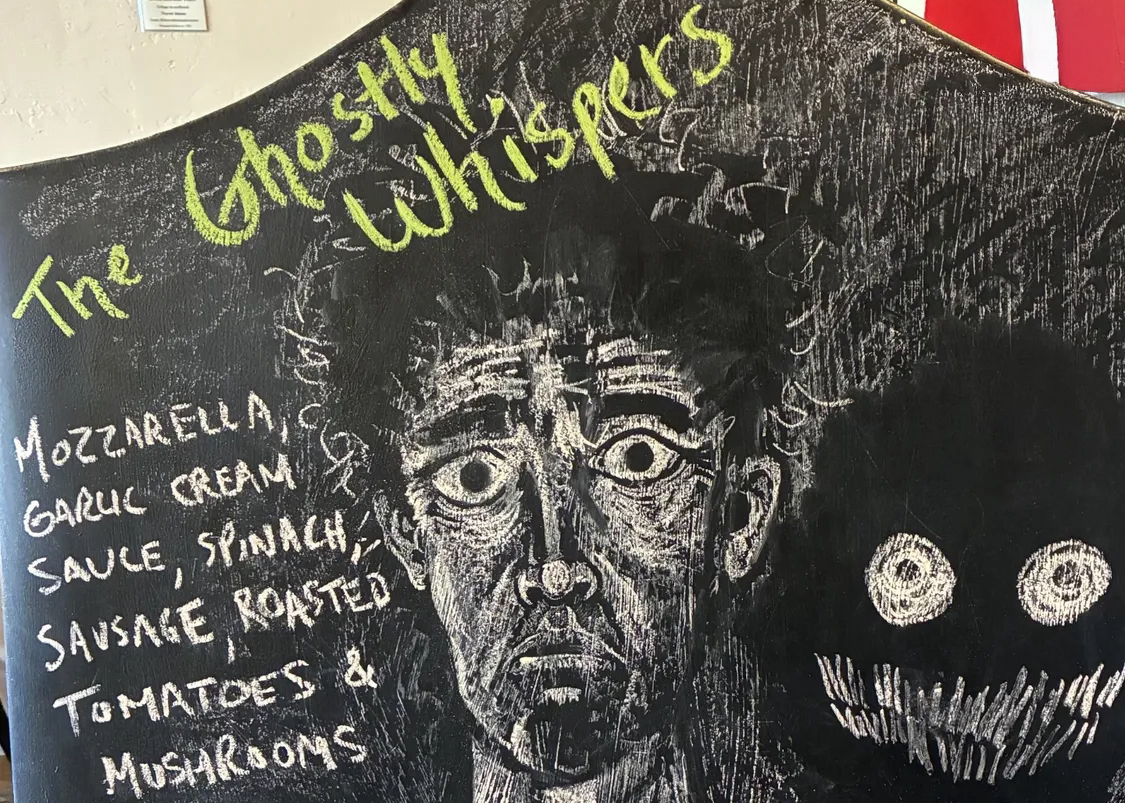 The Ghostly
Whispers
MOZZARELLA,
GARLIC CREAM
SAUCE, SPINACH,
SAUSAGE, ROASTED
TOMATOES &
MUSHROOMS